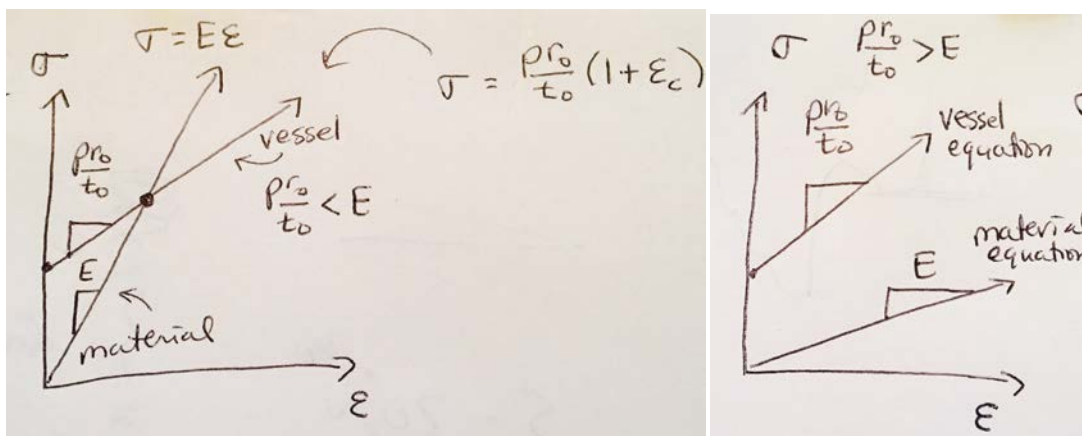 σ = Eε
σ
σ = pr₀/t₀ (1 + ε_c)
vessel
pr₀/t₀
pr₀/t₀ < E
E
material
ε
σ
pr₀/t₀ > E
pr₀/t₀
vessel
equation
material
equation
E
ε